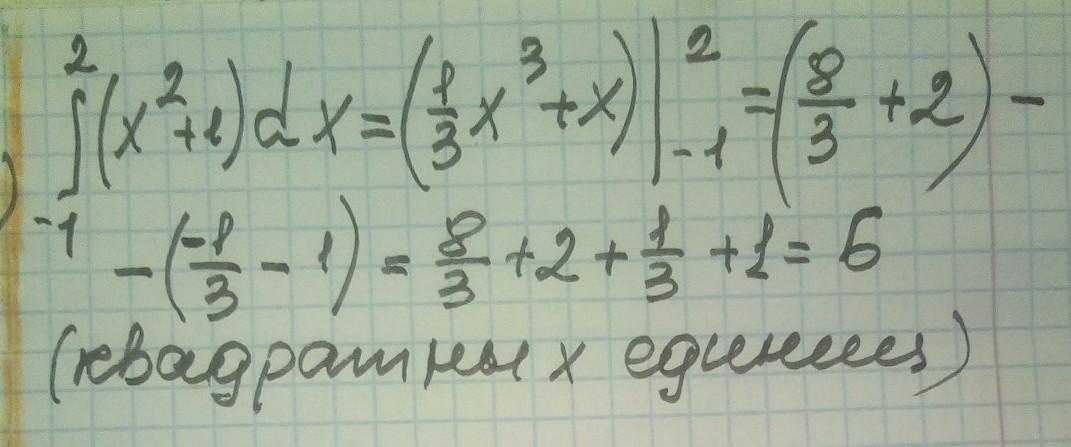 ∫₋₁² (x² + 1) dx = (1/3 x³ + x) |₋₁² = (8/3 + 2) −
− (−1/3 − 1) = 8/3 + 2 + 1/3 + 1 = 6
(квадратных единиц)